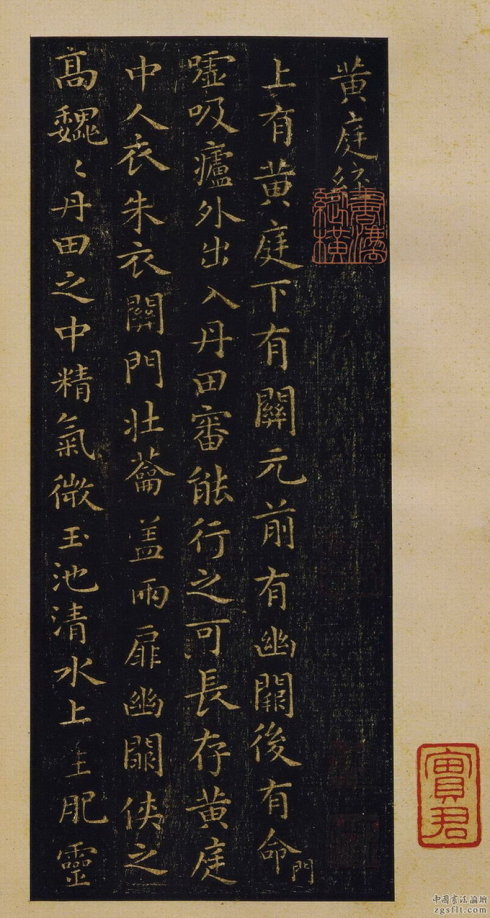 黄庭經
上有黄庭下有關元前有幽闕後有命門
嘘吸廬外出入丹田審能行之可長存黄庭
中人衣朱衣關門壯蘥盖兩扉幽闕侠之
高巍〻丹田之中精氣微玉池清水上生肥靈
實君
中国書法論壇
zgsflt.com